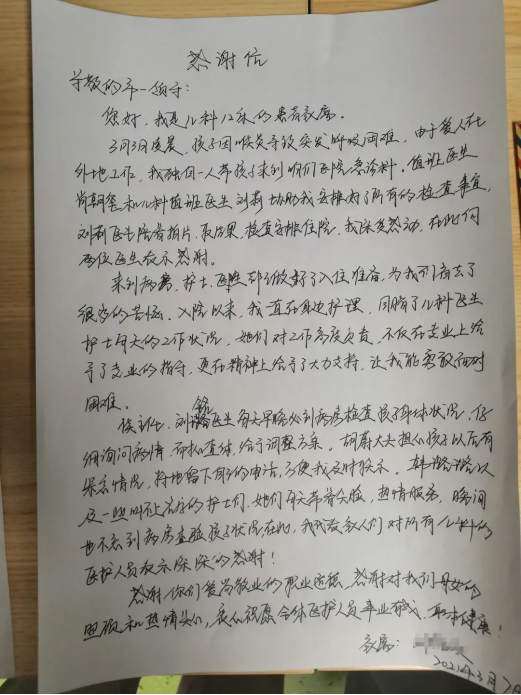 感谢信
尊敬的市一领导:
您好,我是儿科12床的患者家属。
3月3日凌晨,孩子因喉炎导致突发呼吸困难,由于爱人在
外地工作,我独自一人带孩子来到咱们医院急诊科。值班医生
和儿科值班医生刘莉协助我安排好了所有的检查事宜,
刘莉医生陪着拍片、取结果,检查安排住院,我深受感动,在此向
两位医生表示感谢。
来到病房,护士、医生都做好了入住准备,为我们省去了
很多的苦恼。入院以来,我一直在身边护理,目睹了儿科医生
护士每天的工作状况,她们对工作高度负责,不仅在专业上给
予了专业的指导,更在精神上给予了大力支持,让我能勇敢面对
困难。
侯主任、刘医生每天早晚必到病房检查孩子身体状况,仔
细询问病情,而且查体,给予调整方案。胡蔚大夫担心孩子以后有
紧急情况,特地留下自己的电话,方便我及时联系。韩璐璐以
及一些叫不上名字的护士们,她们每天带着笑脸,热情服务,晚间
也不忘到病房查验孩子状况,在此,我代表家人们对所有儿科的
医护人员表示深深的感谢!
感谢你们爱岗敬业的职业道德,感谢对我们母女的
照顾和热情关心,衷心祝愿全体医护人员事业有成,身体健康!
家属:
2021年3月7